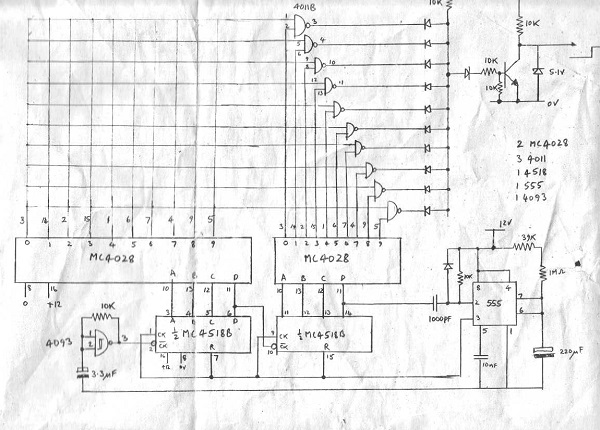 4011B
10K
10K
1
2
3
5
6
4
9
8
10
12
13
11
10K
10K
5·1V
0V
2 MC4028
3 4011
1 4518
1 555
1 4093
3 14 2 15 1 6 7 4 9 5
0 1 2 3 4 5 6 7 8 9
MC4028
A B C D
10 13 12 11
8 16
0 +12
3 14 2 15 1 6 7 4 9 5
0 1 2 3 4 5 6 7 8 9
MC4028
A B C D
10 13 12 11
12V
39K
1MΩ
8 4
2 555 7
6
3
5 1
1000PF
10nF
220µF
10K
4093
1
2
3
3·3µF
3 4 5 6
A B C D
CK
½ MC4518B
CK
R
1
2
16 8
+12 0V
7
11 12 13 14
CK
½ MC4518B
CK
R
9
10
15